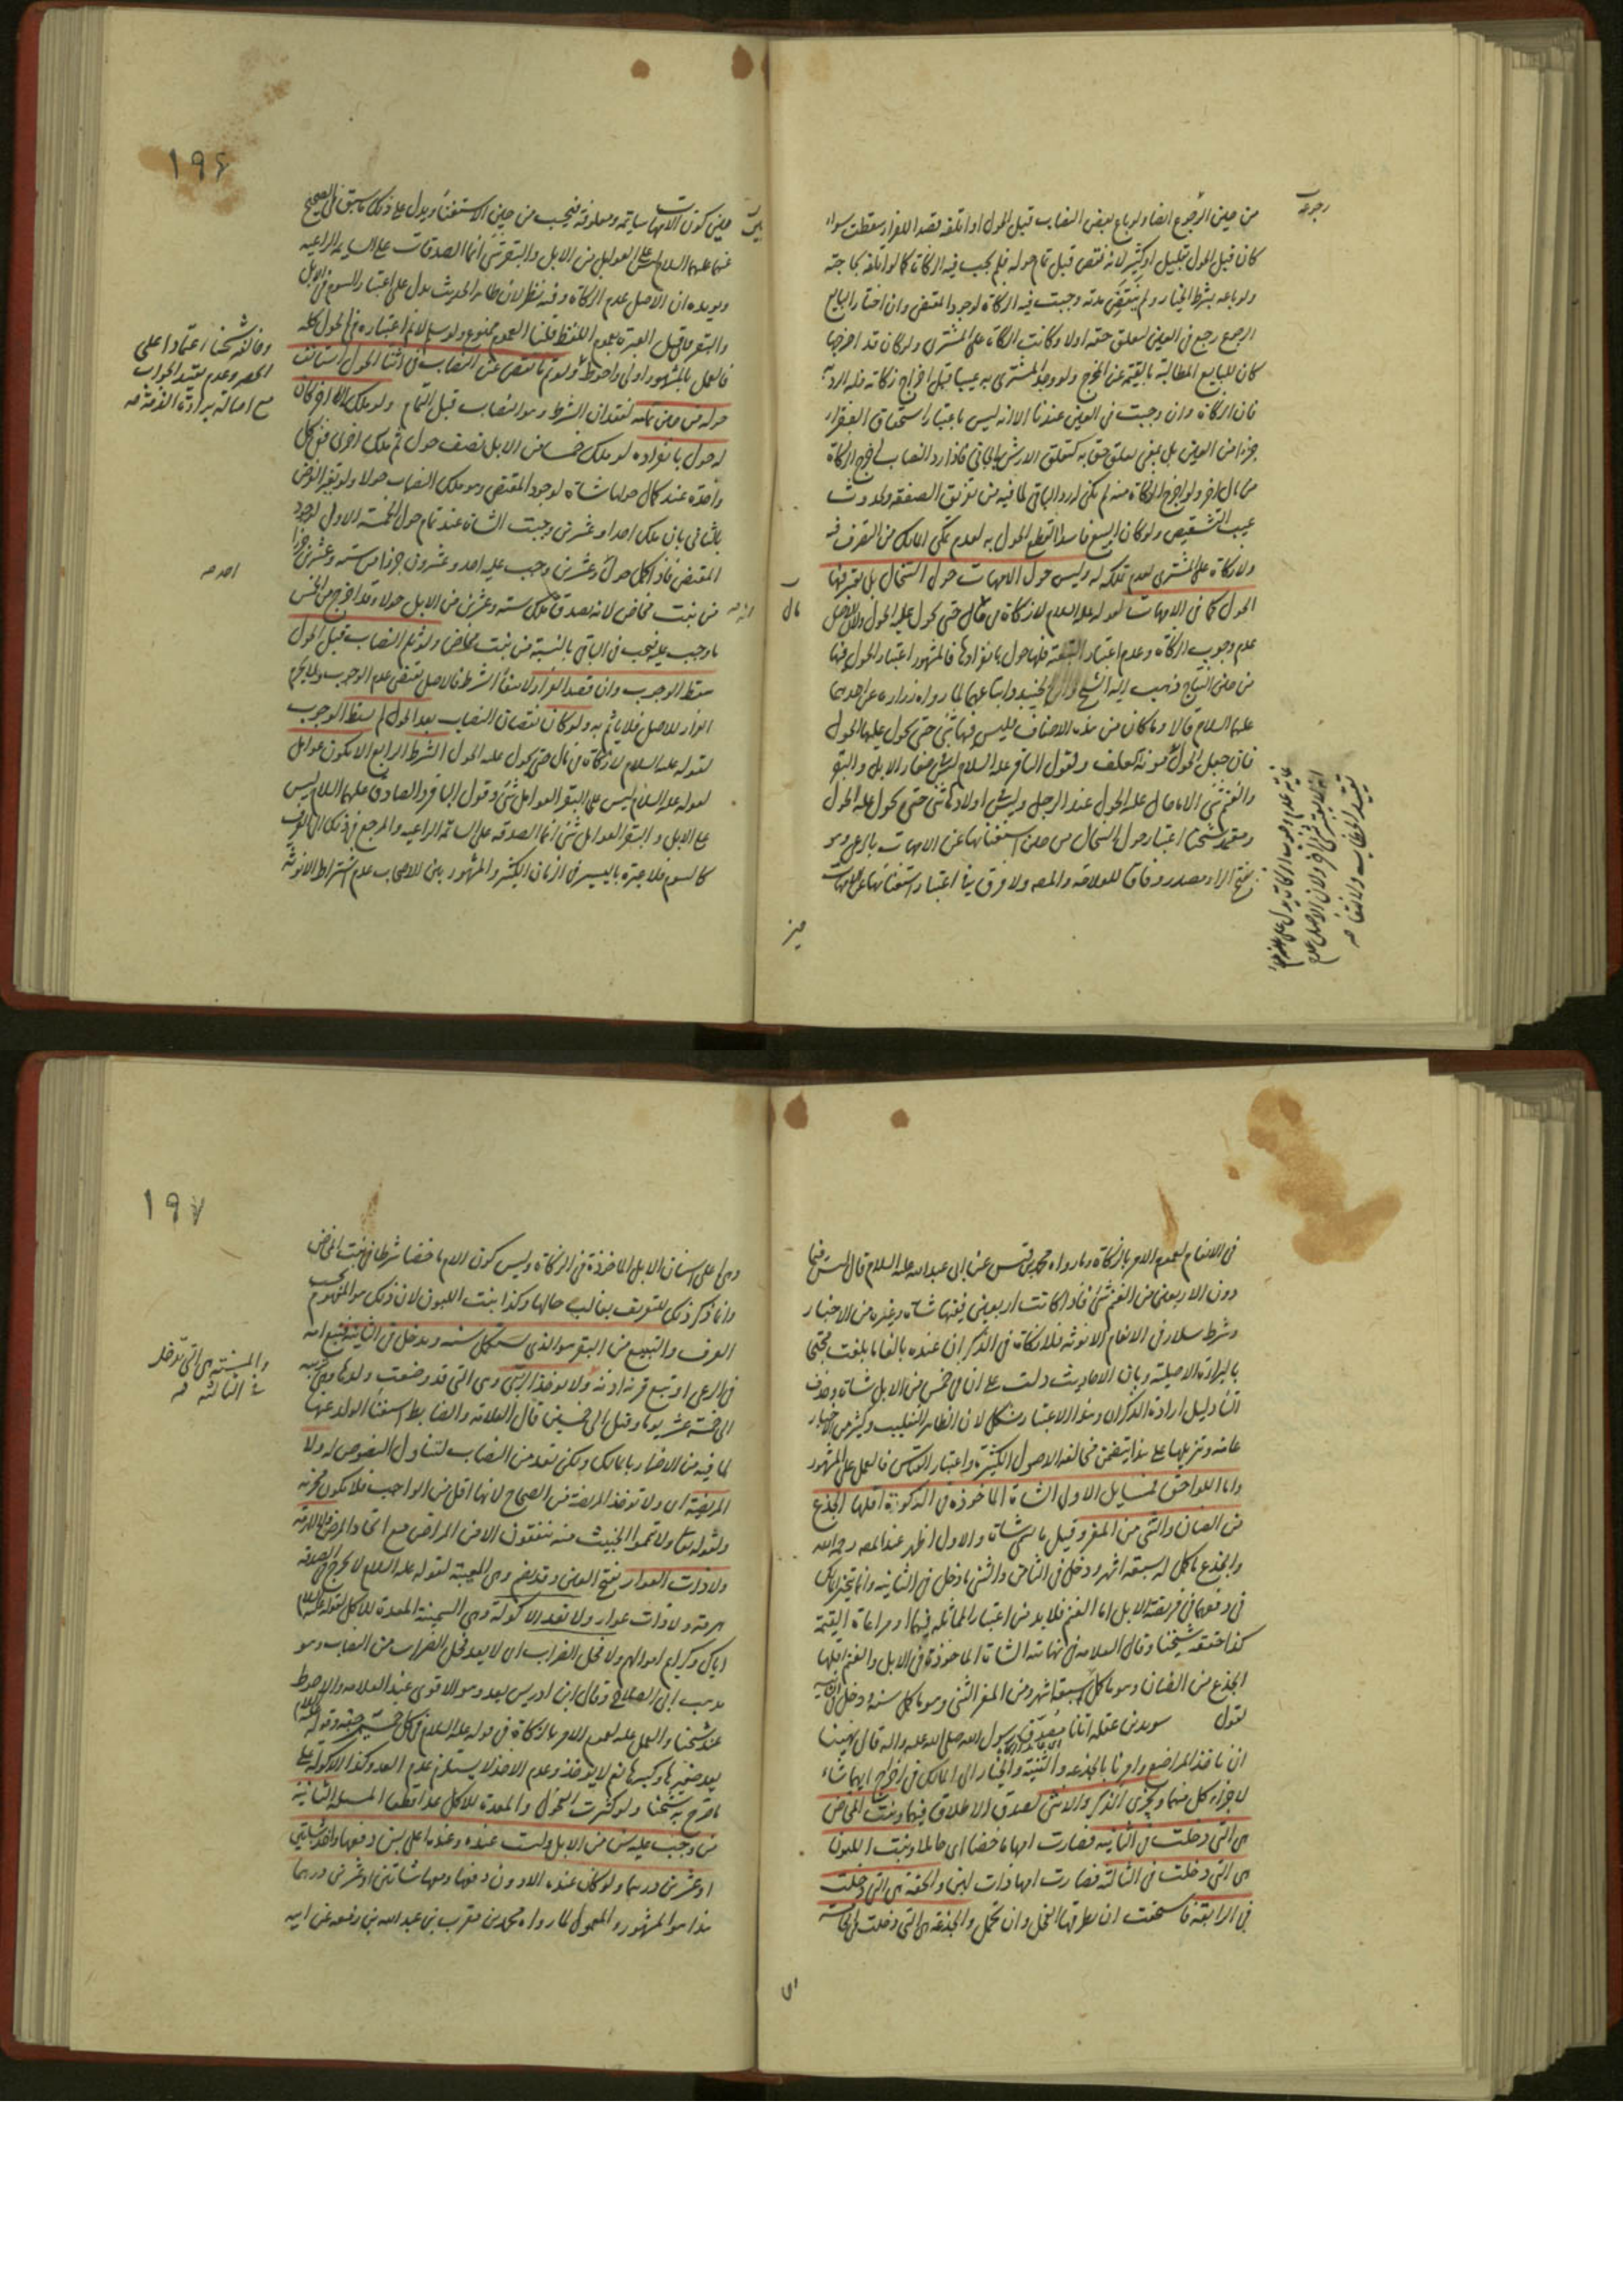 من حين الرجوع ايضا ولو باع بعض النصاب قبل الحول او اتلفه بقصد الفرار سقطت سواء
كان قبل الحول بقليل او كثير لانه نقص قبل تمام حوله فلم يجب فيه الزكاة كما لو اتلفه لحاجته
ولو باعه بشرط الخيار ولم تنقض مدته وجبت فيه الزكاة لوجود المقتضى وان اختار البايع
الرجوع رجع في العين لتعلق حقه اولا وكانت الزكاة على المشترى ولو كان قد اخرجها
كان للبايع المطالبة بالقيمة عن المخرج ولو وجد المشترى به عيبا قبل اخراج زكاته فله الرد
فان الزكاة وان وجبت في العين عندنا الا انه ليس باعتبار استحقاق الفقراء
جزءا من العين بل بمعنى تعلق حق به كتعلق الارش بالجاني فاذا رد النصاب اخرج الزكاة
من مال اخر ولو اخرج الزكاة منه لم يكن له رد الباقي لما فيه من تفريق الصفقة وحدوث
عيب التشقيص ولو كان البيع فاسدا انقطع الحول به لعدم تمكن المالك من التصرف فيه
ولا زكاة على المشترى لعدم تملكه له وليس حول الامهات حول السخال بل يعتبر فيها
الحول كما في الامهات لقوله عليه السلام لا زكاة في مال حتى يحول عليه الحول ولان الاصل
عدم وجوب الزكاة وعدم اعتبار التبعية فلها حول بانفرادها فالمشهور اعتبار الحول فيها
من حين النتاج ذهب اليه الشيخ وابن الجنيد واتباعهما لما رواه زرارة عن احدهما
عليهما السلام قالا وما كان من هذه الاصناف فليس فيها شئ حتى يحول عليها الحول
ولقول الباقر عليه السلام ليس في صغار الابل والبقر
والغنم شئ الا ما حال عليه الحول عند الرجل وليس في اولادها شئ حتى يحول عليه الحول
شيخنا اعتبار حول السخال من حين استغنائها عن الامهات بالرعي وهو
بفتح الراء مصدر وفاقا للعلامة والمصـ ولا فرق في اعتبار استغنائها عن الامهات
رجوعه
مال
حين كون الامهات سايمة ومعلوفة فيجب من حين الاستغناء ويدل على ذلك ما سبق في الصحيح
عنهما عليهما السلام ليس على العوامل من الابل والبقر شئ انما الصدقات على السايمة الراعية
ويؤيده ان الاصل عدم الزكاة وفيه نظر لان ظاهر الحديث يدل على اعتبار السوم في الابل
والبقر العبرة بعموم اللفظ قلنا العموم ممنوع ولو سلم لانم اعتباره في الحول كله
فالعمل بالمشهور اولى واحوط ولو تم ما نقص عن النصاب في اثناء الحول استأنف
حوله من حين تمامه لفقدان الشرط وهو النصاب قبل التمام ولو ملك مالا اخر كان
له حول بانفراده لو ملك خمسا من الابل نصف حول ثم ملك اخرى ففي كل
واحدة عند كمال حولها شاة لوجود المقتضى وهو ملك النصاب حولا ولو تغير الفرض
بالثاني بان ملك احدا وعشرين وجبت الشاة عند تمام حول الخمسة الاول لوجود
المقتضى فاذا كمل حول وعشرين وجب عليه احد وعشرون جزءا من ستة وعشرين جزءا
من بنت مخاض لانه يصدق ملك ستة وعشرين من الابل حولا وقد اخرج من الخمس
ما وجب عليه فيجب في الباقي بالنسبة من بنت مخاض ولو ثلم النصاب قبل الحول
سقط الوجوب وان قصد الفرار لانتفاء الشرط فالاصل يقتضى عدم الوجوب ولا يحرم
الفرار للاصل فلا يأثم به ولو كان نقصان النصاب بعد الحول لم يسقط الوجوب
لقوله عليه السلام لا زكاة في مال حتى يحول عليه الحول الشرط الرابع الا يكون عوامل
لقوله عليه السلام ليس على البقر العوامل شئ وقول الباقر والصادق عليهما السلام ليس
على الابل والبقر العوامل شئ انما الصدقة على السائمة الراعية والمرجع في ذلك الى العرف
كالسوم فلا عبرة باليسير في الزمان الكثير والمشهور بين الاصحاب عدم اشتراط الانوثة
١٩٦
وخالف شيخنا اعتمادا على
الحصر وعدم تقييد الجواب
مع اصالة براءة الذمة صح
احد صح
في الانعام لعموم الامر بالزكاة وما رواه محمد بن قيس عن ابى عبد الله عليه السلام قال ليس فيما
دون الاربعين من الغنم شئ فاذا كانت اربعين ففيها شاة وغيره من الاخبار
وشرط سلار في الانعام الانوثة فلا زكاة في الذكران عنده بالغا ما بلغت محتجا
بالبراءة الاصلية وبان الاحاديث دلت على ان في خمس من الابل شاة وحذف
التاء دليل ارادة الذكران وهذا الاعتبار مشكل لان الظاهر التغليب وكثير من الاخبار
عامة وتنزيلها على هذا يتضمن مخالفة الاصول الكثيرة واعتبار القياس فالعمل على المشهور
واما اللواحق فمسايل الاولى الشاة الماخوذة في الزكوة اقلها الجذع
من الضان والثنى من المعز وقيل ما يسمى شاة والاول اظهر عند المصـ رحمه الله
والجذع ما كمل له سبعة اشهر ودخل في الثامن والثنى ما دخل في الثانية وانما يتخير المالك
في دفعها في فريضة الابل اما الغنم فلا بد من اعتبار المماثلة فيها او مراعاة القيمة
كذا حققه شيخنا وقال العلامة في نهايته الشاة الماخوذة في الابل والغنم اقلها
الجذع من الضان وهو ما كمل سبعة اشهر ومن المعز الثنى وهو ما كمل سنة ودخل في الثانية
لقول سويد بن غفلة اتانا مصدق رسول الله صلى الله عليه واله قال نهينا
ان ناخذ المراضع وامرنا بالجذعة والثنية والخيار الى المالك في اخراج ايهما شاء
لاجزاء كل منهما ويجزى الذكر والانثى لصدق الاطلاق فيهما وبنت المخاض
هى التى دخلت في الثانية فصارت امها ماخضا اى حاملا وبنت اللبون
هى التى دخلت في الثالثة فصارت امها ذات لبن والحقة هى التى دخلت
في الرابعة فاستحقت ان يطرقها الفحل وان تحمل والجذعة هى التى دخلت في الخامسة
١٩٧
وهى اعلى اسنان الابل الماخوذة في الزكاة وليس كون الام ماخضا شرطا في بنت المخاض
وانما ذكر ذلك للتعريف بغالب حالها وكذا بنت اللبون لان ذلك هو المفهوم بحسب
العرف والتبيع من البقر هو الذى يستكمل سنة ويدخل في الثانية فيتبع امه
في الرعى او تبع قرنه اذنه ولا يؤخذ الربى وهى التى قد وضعت ولدها وهى تربيه
الى خمسة عشر يوما وقيل الى خمسين قال العلامة والضابط استغناء الولد عنها
لما فيه من الاضرار بالمالك ولكن تعد من النصاب لتناول النصوص له ولا
المريضة اى ولا تؤخذ المريضة من الصحاح لانها اقل من الواجب فلا تكون مجزية
ولقوله تعالى ولا تيمموا الخبيث منه تنفقون الا من المراض مع اتحاد المرض ولا الهرمة
ولا ذات العوار بفتح العين وقد يضم وهى المعيبة لقوله عليه السلام لا يخرج في الصدقة
هرمة ولا ذات عوار ولا تعد الاكولة وهى السمينة المعدة للاكل لقوله عليه السلام
اياك وكرايم اموالهم ولا فحل الضراب اى لا يعد فحل الضراب من النصاب وهو
مذهب ابى الصلاح وقال ابن ادريس يعد وهو الاقوى عند العلامة والاحوط
عند شيخنا والعمل عليه لعموم الامر بالزكاة
يعد صغيرها وكبيرها نعم لا يؤخذ وعدم الاخذ لا يستلزم عدم العد وكذا الاكولة على
ما صرح به شيخنا ولو كثرت الفحول والمعدة للاكل عدا قطعا المسألة الثانية
من وجب عليه سن من الابل وليست عنده وعنده اعلى بسن دفعها واخذ شاتين
او عشرين درهما ولو كان عنده الادون دفعها ومعها شاتين او عشرين درهما
هذا هو المشهور والمعمول لما رواه محمد بن مقرن بن عبد الله بن زمعة عن ابيه
والمسنة هى التى تدخل
في الثالثة صح